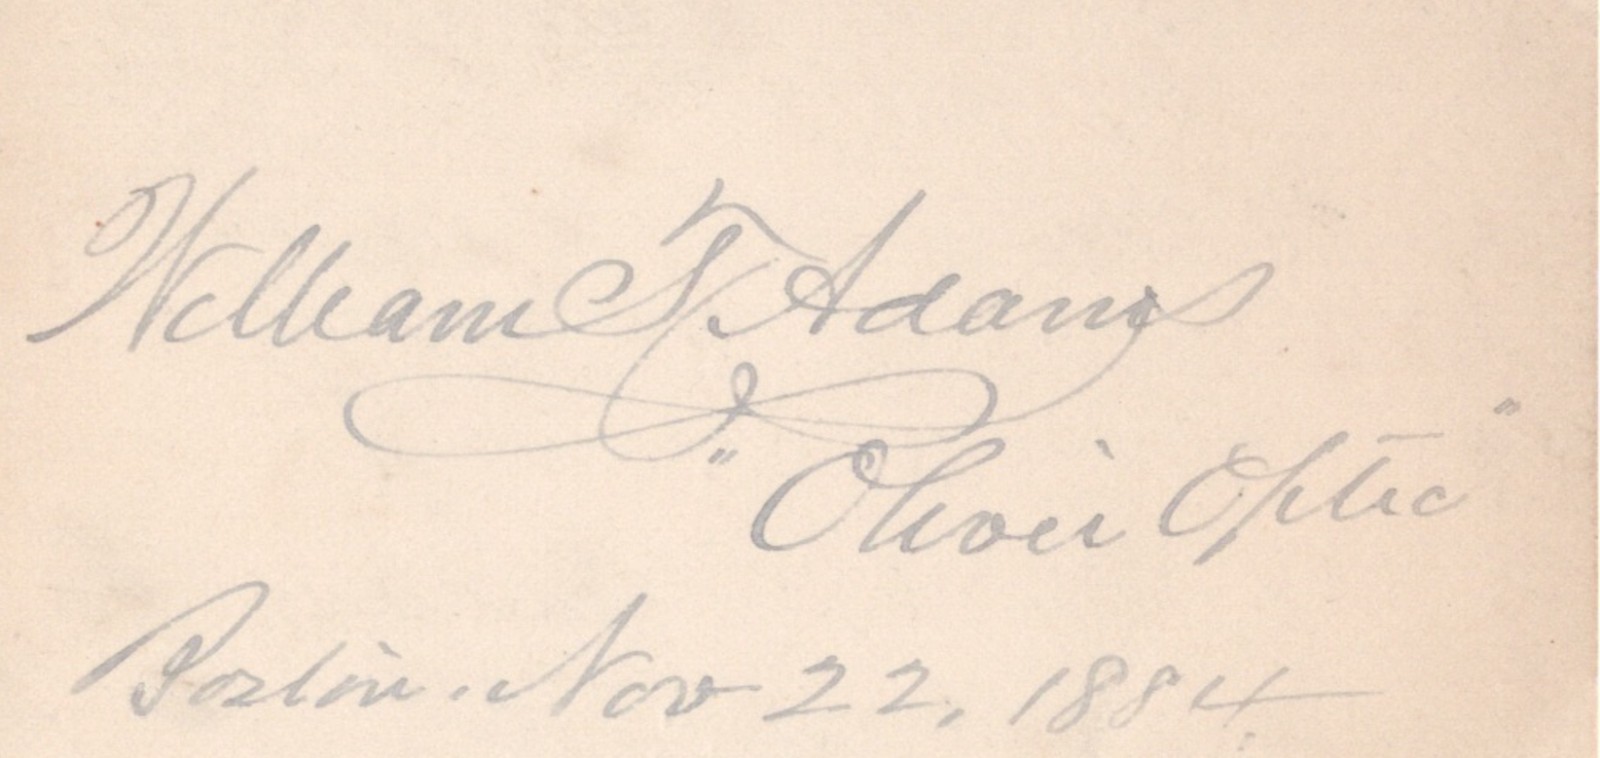 William T. Adams
"Oliver Optic"
Boston. Nov 22, 1884